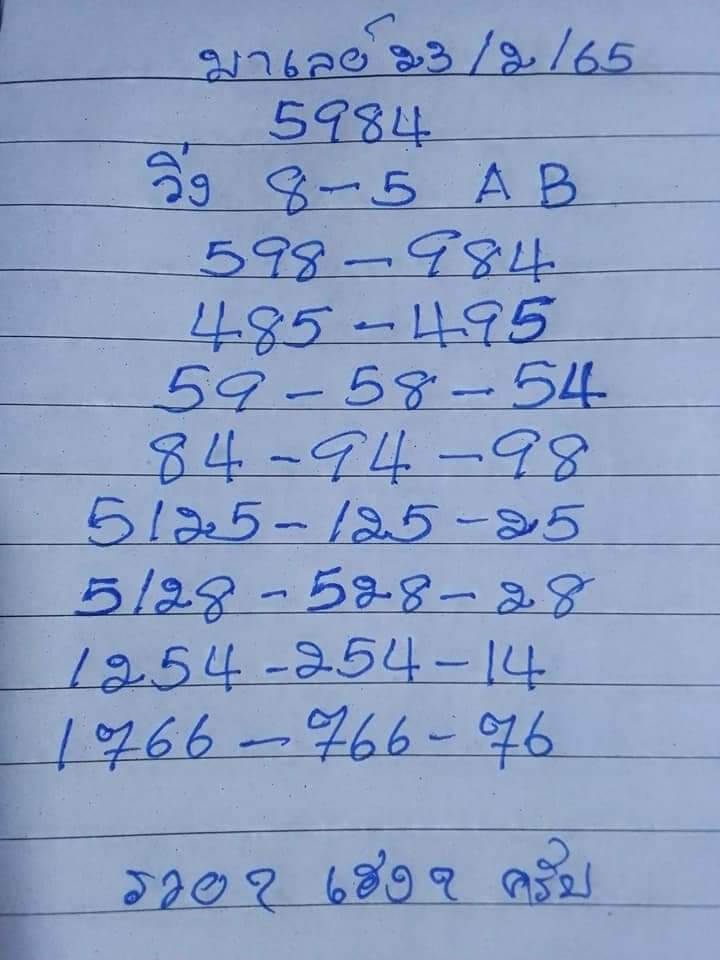 มาเลย์ 23/2/65
5984
วิ่ง 8-5 A B
598-984
485-495
59-58-54
84-94-98
5125-125-25
5128-528-28
1254-254-14
1766-766-76
รวยๆ เฮงๆ ครับ